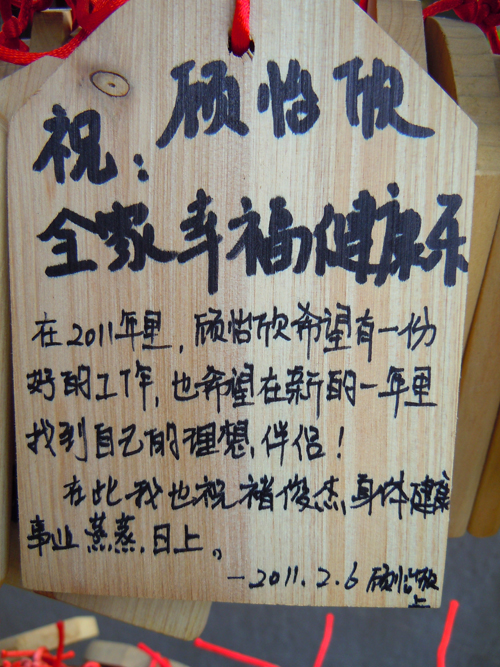 祝：顾怡欣
全家幸福健康乐
在2011年里，顾怡欣希望有一份
好的工作，也希望在新的一年里
找到自己的理想伴侣！
在此我也祝褚俊杰，身体健康
事业蒸蒸日上。
—2011.2.6 顾怡欣
上